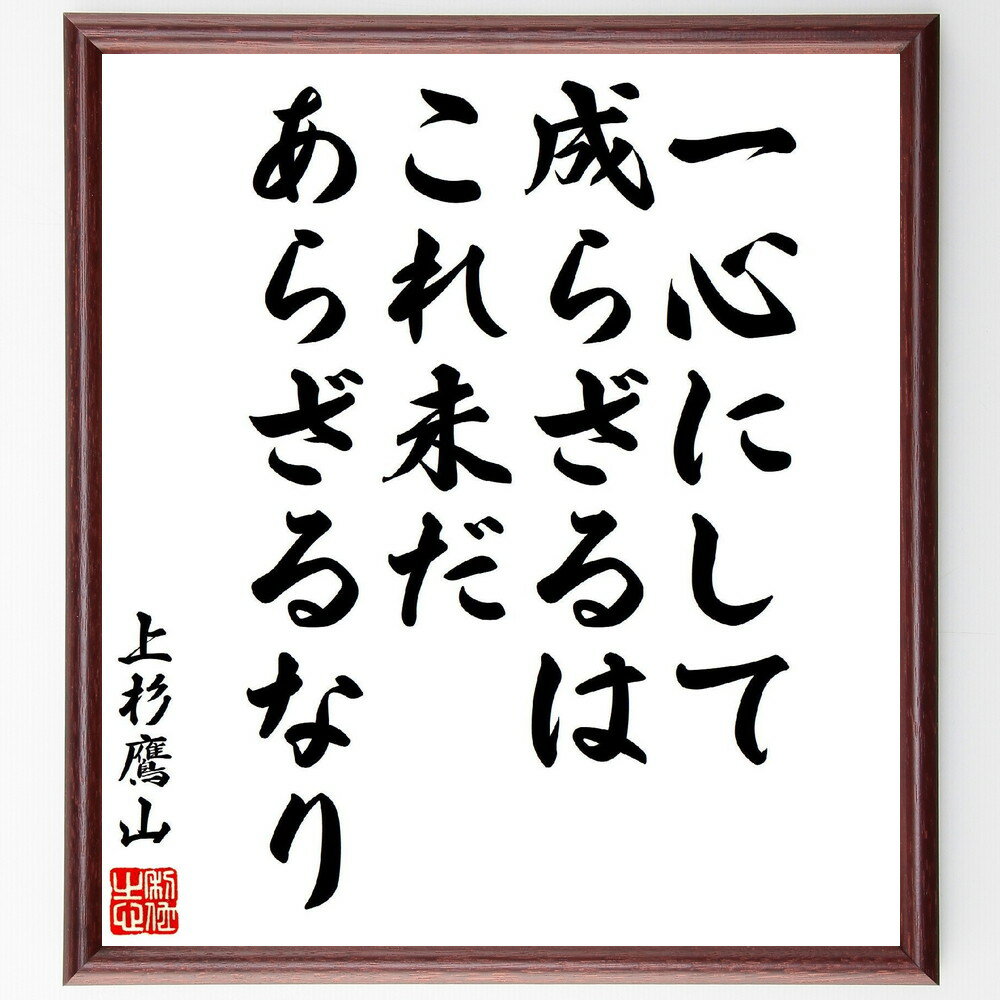 一心にして
成らざるは
これ未だ
あらざるなり
上杉鷹山